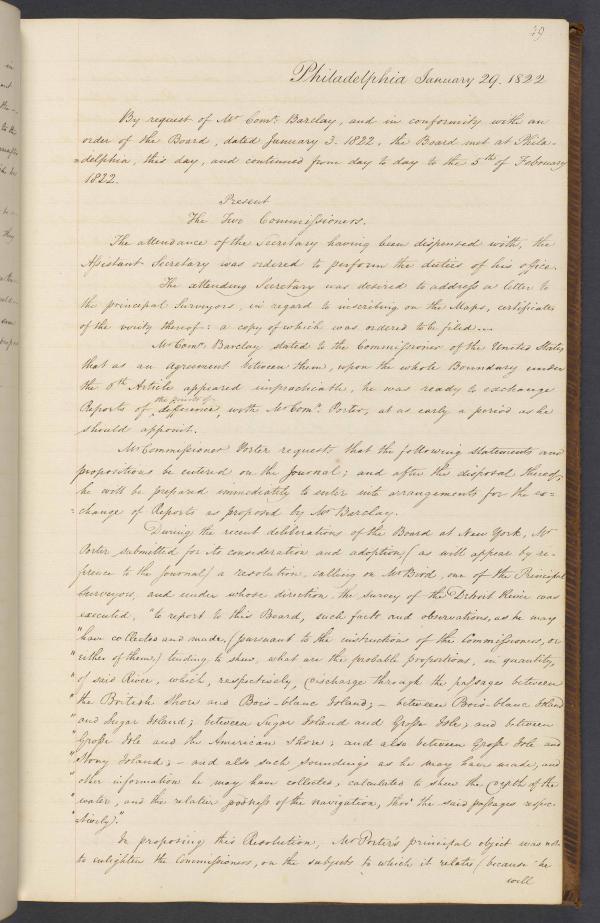 79
Philadelphia January 29. 1822
By request of Mr Comr. Barclay, and in conformity with an
order of the Board, dated January 3. 1822, the Board met at Phila-
=delphia, this day, and continued from day to day to the 5th of February
1822.
Present
The Two Commissioners.
The attendance of the Secretary having been dispensed with, the
Assistant Secretary was ordered to perform the duties of his office.
The attending Secretary was desired to address a letter to
the principal Surveyors, in regard to inscribing on the Maps, certificates
of the verity thereof: a copy of which was ordered to be filed.
Mr Comr. Barclay stated to the Commissioner of the United States
that as an agreement between them, upon the whole Boundary under
the 6th Article appeared impracticable, he was ready to exchange
the points of
Reports of difference, with Mr Comr. Porter, at as early a period as he
should appoint.
Mr Commissioner Porter requests that the following statements and
propositions be entered on the Journal; and after the disposal thereof,
he will be prepared immediately to enter into arrangements for the ex-
=change of Reports as proposed by Mr Barclay.
During the recent deliberations of the Board at New York, Mr
Porter submitted for its consideration and adoption, (as will appear by re-
ference to the Journal) a resolution, calling on Mr Bird, one of the Principal
Surveyors, and under whose direction, the survey of the Detroit River was
executed, "to report to this Board, such facts and observations, as he may
"have collected and made, (pursuant to the instructions of the Commissioners, or
"either of them,) tending to shew, what are the probable proportions, in quantity,
"of said River, which, respectively, discharge through the passages between
"the British Shore and Bois-blanc Island; – between Bois-blanc Island
"and Sugar Island; between Sugar Island and Grosse Isle; and between
"Grosse Isle and the American Shore; and also between Grosse Isle and
"Stony Island; – and also such soundings as he may have made, and
"other information he may have collected, calculated to shew the depth of the
"water, and the relative goodness of the navigation, thro' the said passages respec-
"tively."
In proposing this Resolution, Mr Porter's principal object was not
to enlighten the Commissioners, on the subjects to which it relates (because he
will